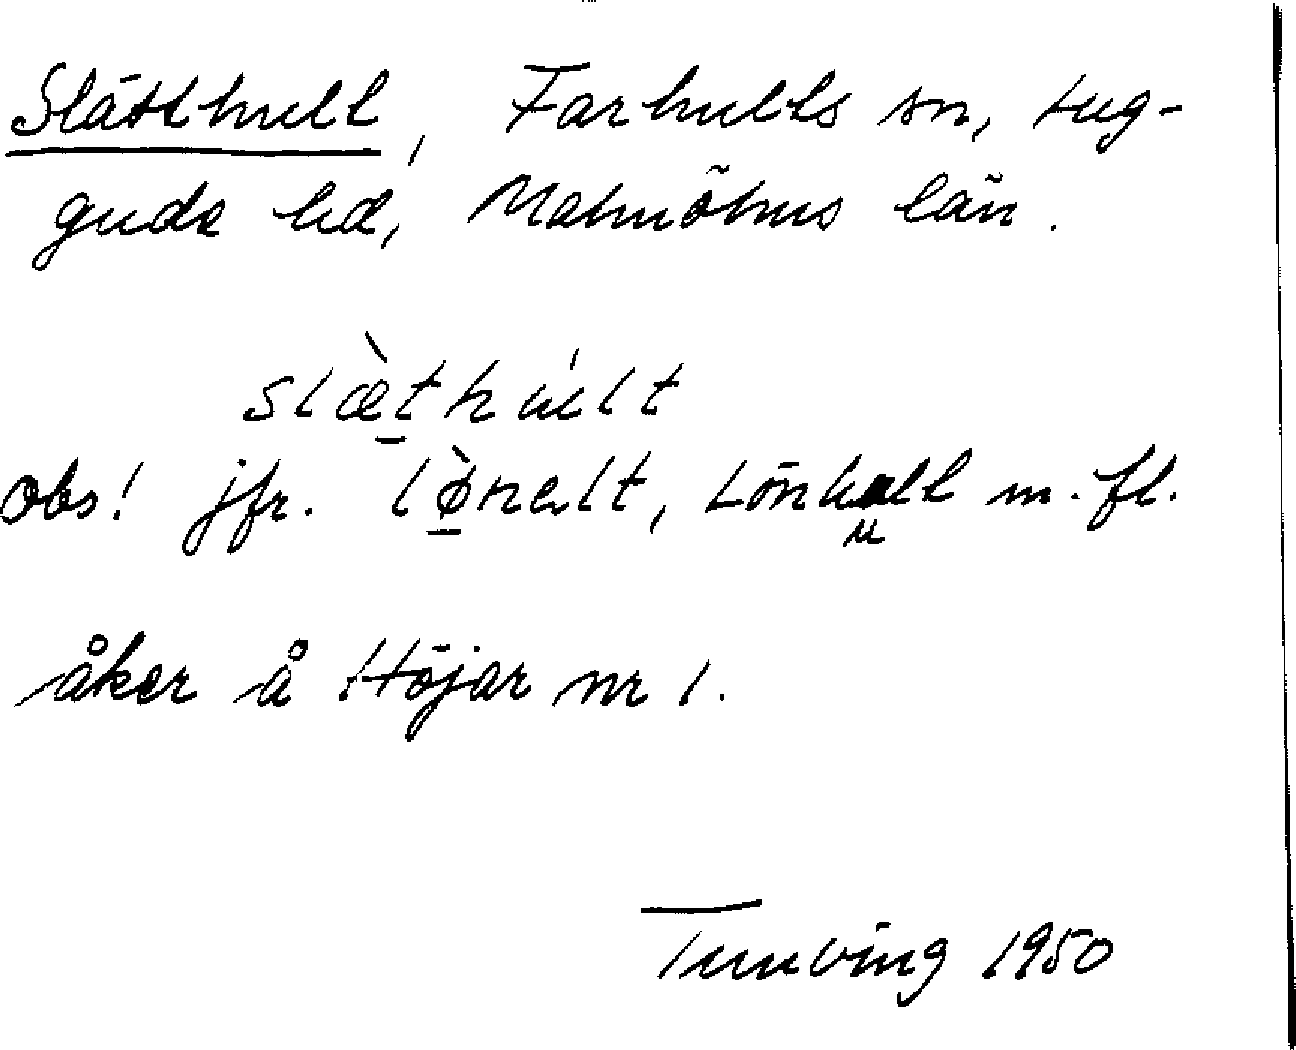 Slätthult, Farhults sn, Lug-
gude hd, Malmöhus län.
slæ̀thu̍lt
obs! jfr. lø̀nelt, Lönhult m. fl.
åker å Höjar nr 1.
Tunving 1950